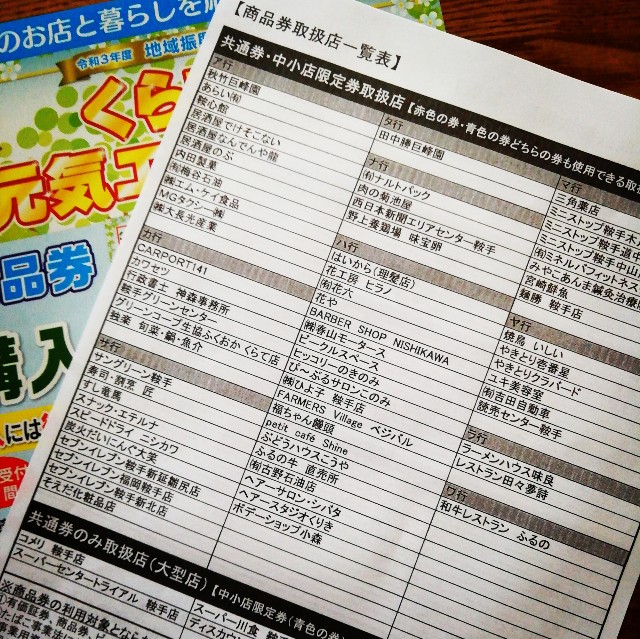 のお店と暮らしを
令和3年度 地域振
くら
元気
品券
購入
には
受付
間
【商品券取扱店一覧表】
共通券・中小店限定券取扱店【赤色の券・青色の券どちらの券も使用できる取
ア行
秋竹巨峰園
あらい㈲
鞍心館
居酒屋でけそこない
居酒屋なんでんや龍
居酒屋のぶ
内田製菓
㈲梅谷石油
㈱エム・ケイ食品
MGタクシー㈱
㈱大長光産業
カ行
CARPORT141
カワセツ
行政書士 神森事務所
鞍手グリーンセンター
グリーンコープ生協ふくおか くらて店
独楽 旬菜・鍋・魚介
サ行
サングリーン鞍手
寿司・割烹 匠
すし竜馬
スナック・エテルナ
スピードドライ ニシカワ
炭火だいにんぐ大堂
セブンイレブン鞍手新延難尻店
セブンイレブン福岡鞍手店
セブンイレブン鞍手新北店
そえだ化粧品店
タ行
田中勝巨峰園
ナ行
㈲ナルトパック
肉の菊池屋
西日本新聞エリアセンター鞍手
野上養鶏場 味宝卵
ハ行
はいから(理髪店)
花工房 ヒラノ
㈲花六
花や
BARBER SHOP NISHIKAWA
㈱香山モータース
ビークルスペース
ヒッコリーのきのみ
び～ぶるサロンこのみ
㈱ひよ子 鞍手店
FARMERS Village ベジパル
福ちゃん饅頭
petit café Shine
ぶどうハウスこうや
ふるの牛 直売所
㈲古野石油店
ヘアーサロン・シバタ
ヘアースタジオくりき
ボデーショップ小森
マ行
三角薬店
ミニストップ鞍手
ミニストップ鞍手道中
ミニストップ鞍手中山
㈲ミネルバフィットネス
みやこあんま鍼灸治療
宮崎鮮魚
麺勝 鞍手店
ヤ行
焼鳥 いしい
やきとり壱番星
やきとりクラパード
ユキ美容室
㈲吉田自動車
読売センター鞍手
ラ行
ラーメンハウス味良
レストラン田々夢詩
ワ行
和牛レストラン ふるの
共通券のみ取扱店(大型店)【中小店限定券(青色の券)
コメリ 鞍手店
スーパーセンタートライアル 鞍手店
スーパー川食 鞍
ディスカウン
※商品券の利用対象となら
有価証券、商品券、ビ